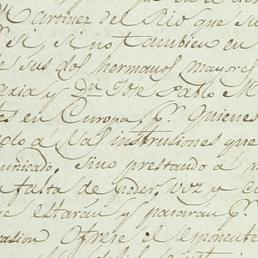 Martinez del Rio que su
si, si no tambien en
e sus dos hermanos mayores
aria y Dn Jose Pablo M
es en Europa, pr. quienes
do á las instrusiones que
municado, sino prestando a
falta de poder, voz y c
e estarán y pasaran pr.
rasion Ofrese el esponente